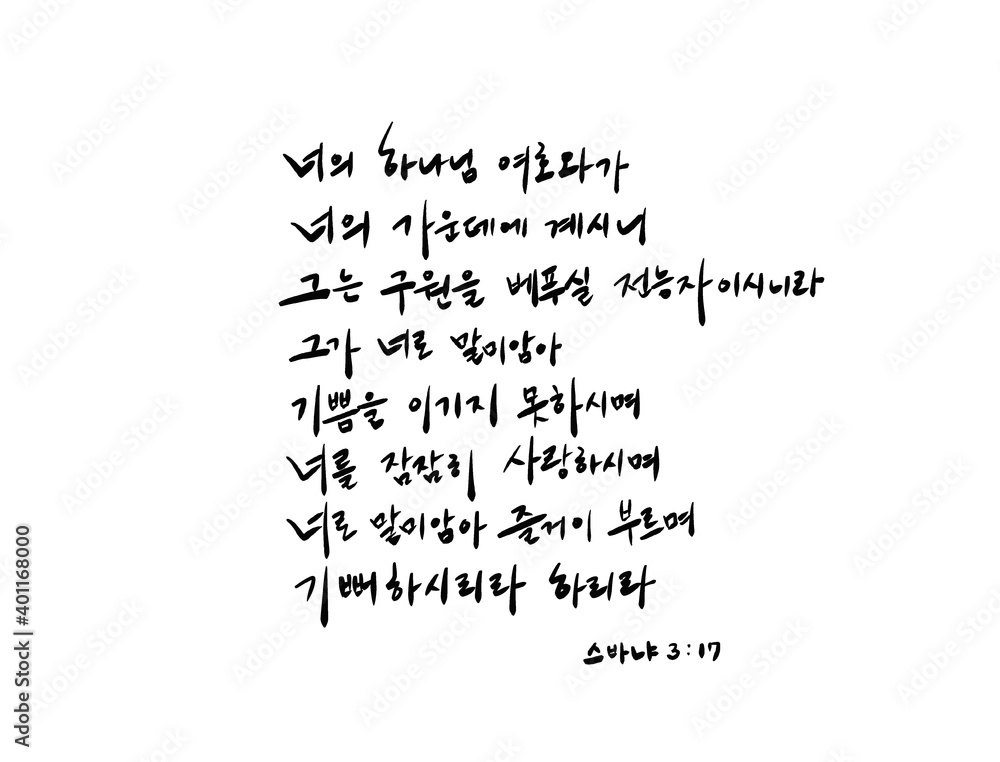 너의 하나님 여호와가
너의 가운데에 계시니
그는 구원을 베푸실 전능자이시니라
그가 너로 말미암아
기쁨을 이기지 못하시며
너를 잠잠히 사랑하시며
너로 말미암아 즐거이 부르며
기뻐하시리라 하리라
스바냐 3:17
Adobe Stock | #401168000